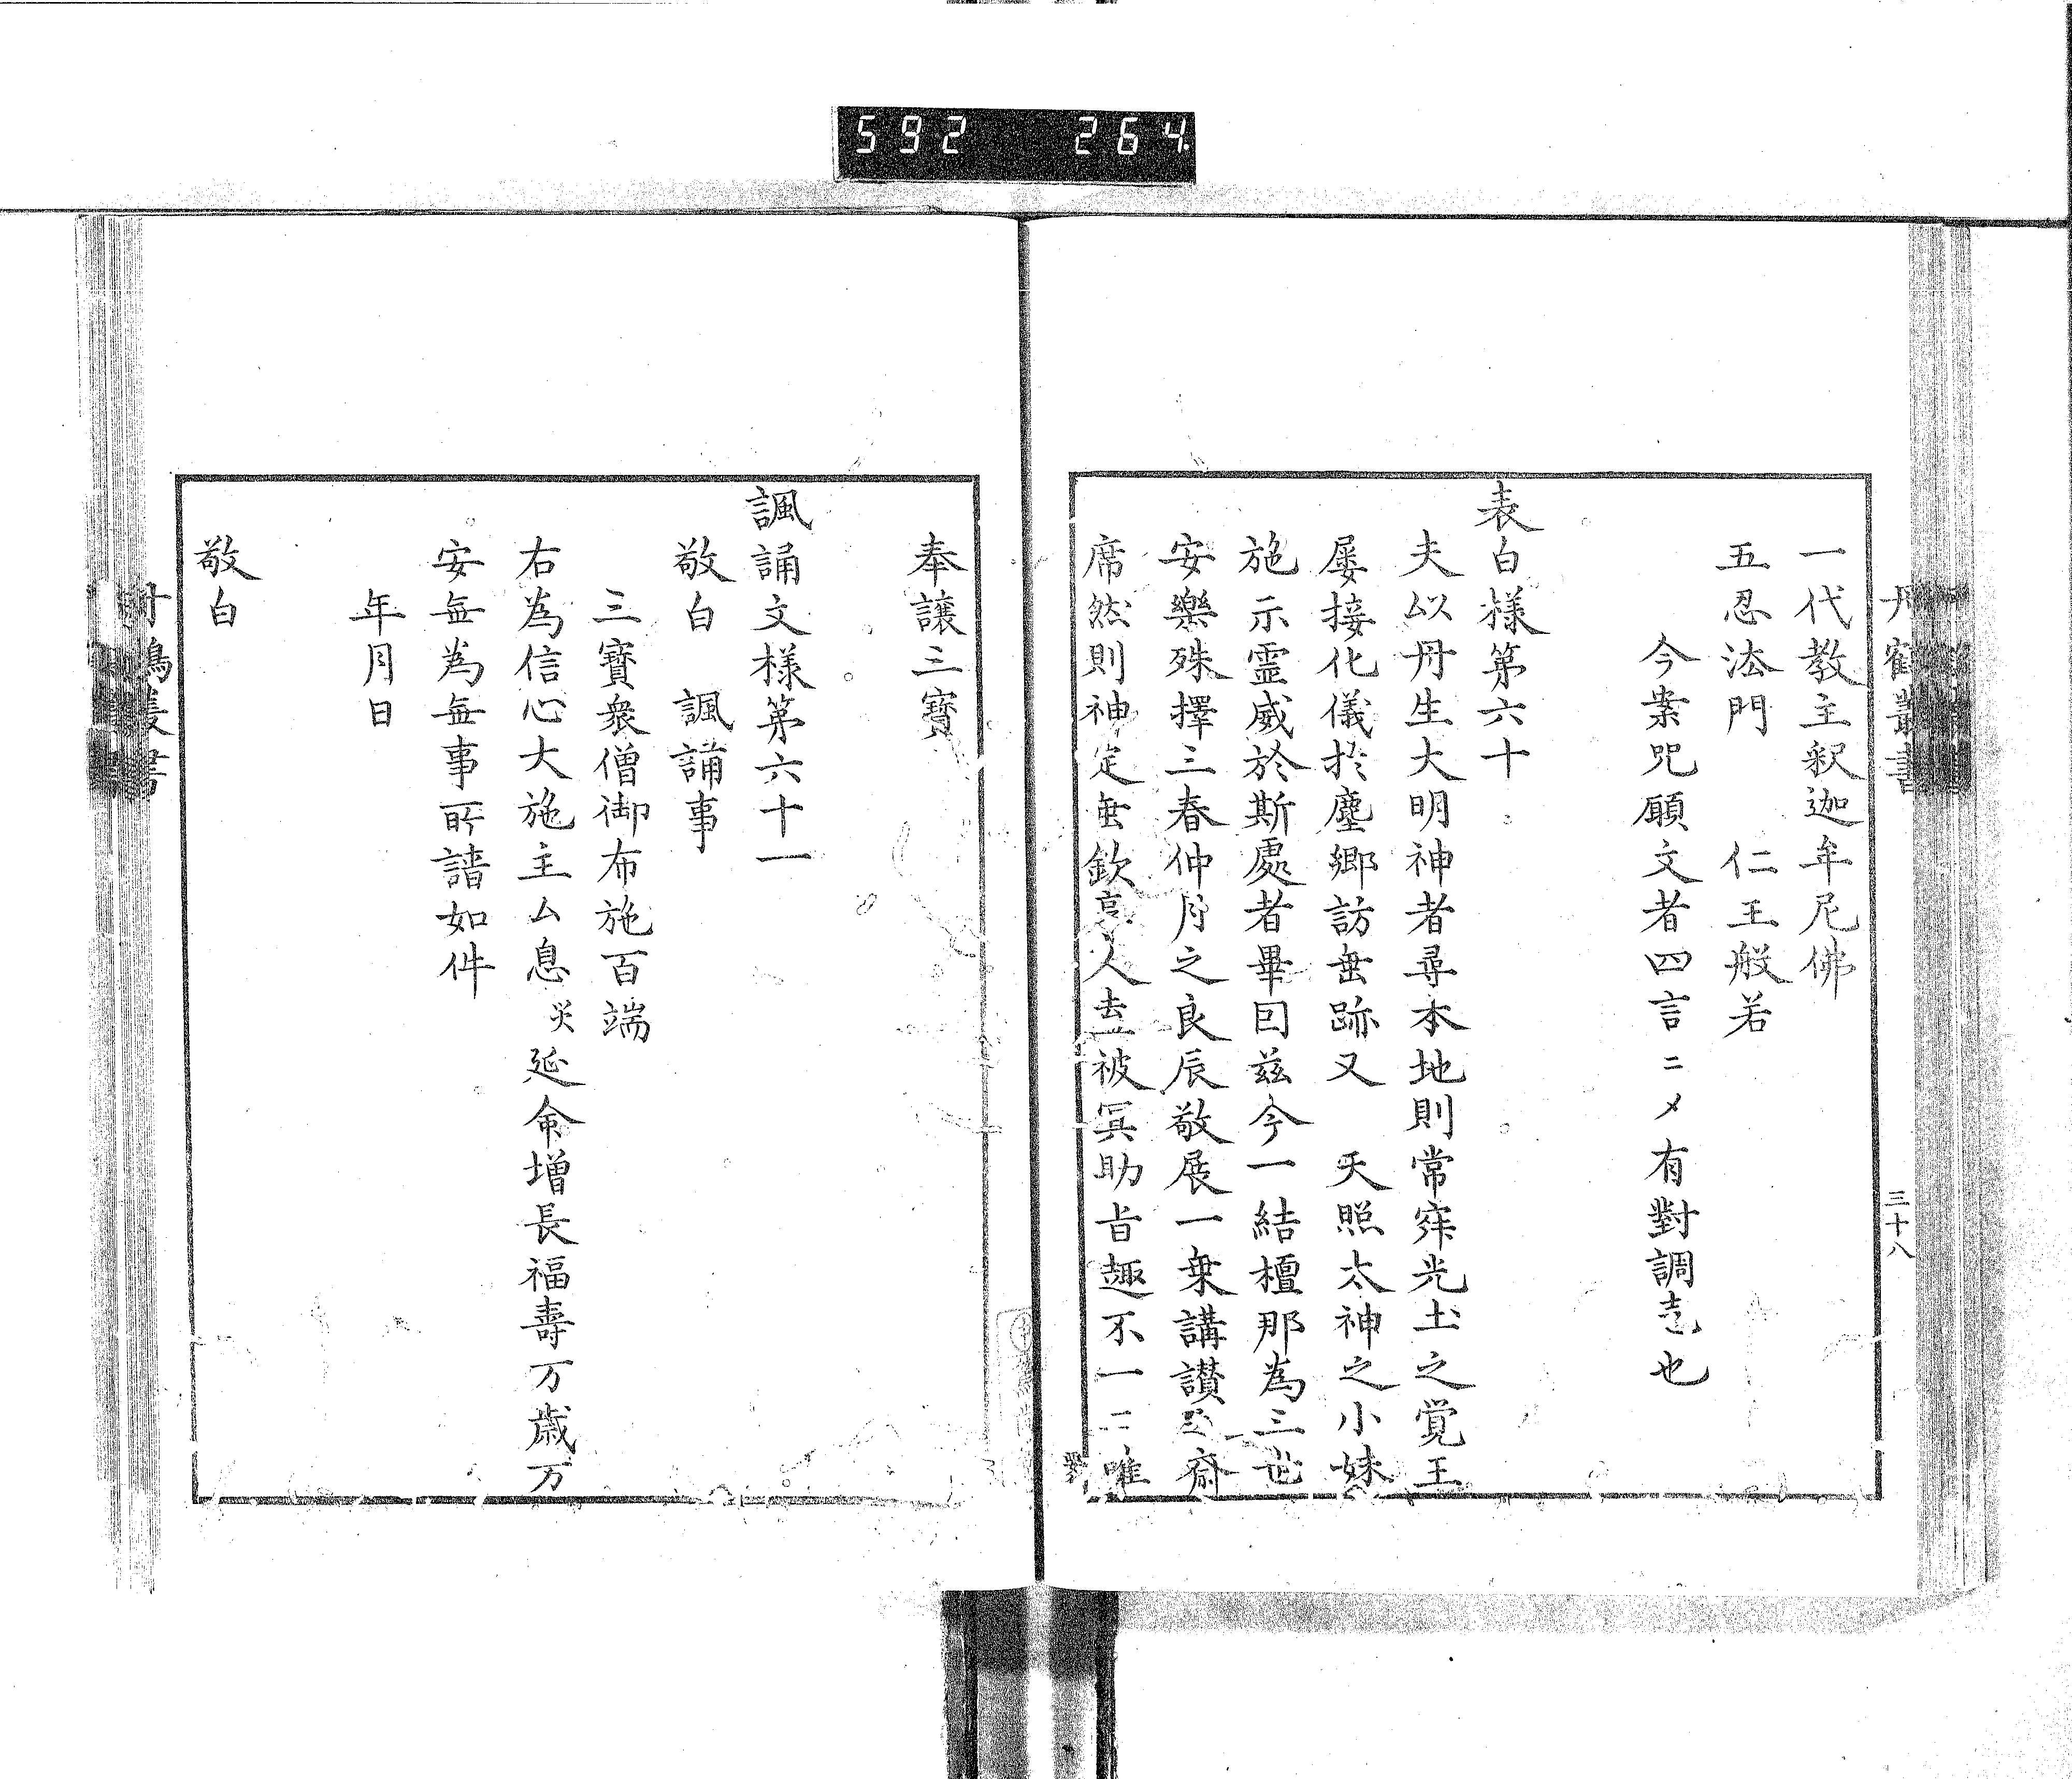 592 264
丹鶴叢書
三十八
一代教主釈迦牟尼佛
五忍法門 仁王般若
今案咒願文者四言ニメ有對調声也
表白様第六十
夫以丹生大明神者尋本地則常寂光土之覚王
屡接化儀於塵郷訪垂跡又 天照太神之小妹
施示霊威於斯處者畢因茲今一結檀那為三世
安樂殊擇三春仲月之良辰敬展一乗講讃斎
席然則神定垂欽享人去被冥助旨趣不一二唯
奉譲三寳
諷誦文様第六十一
敬白 諷誦事
三寳衆僧御布施百端
右為信心大施主厶息災延命増長福壽万歳万
安無為無事所請如件
年月日
敬白
丹鶴叢書